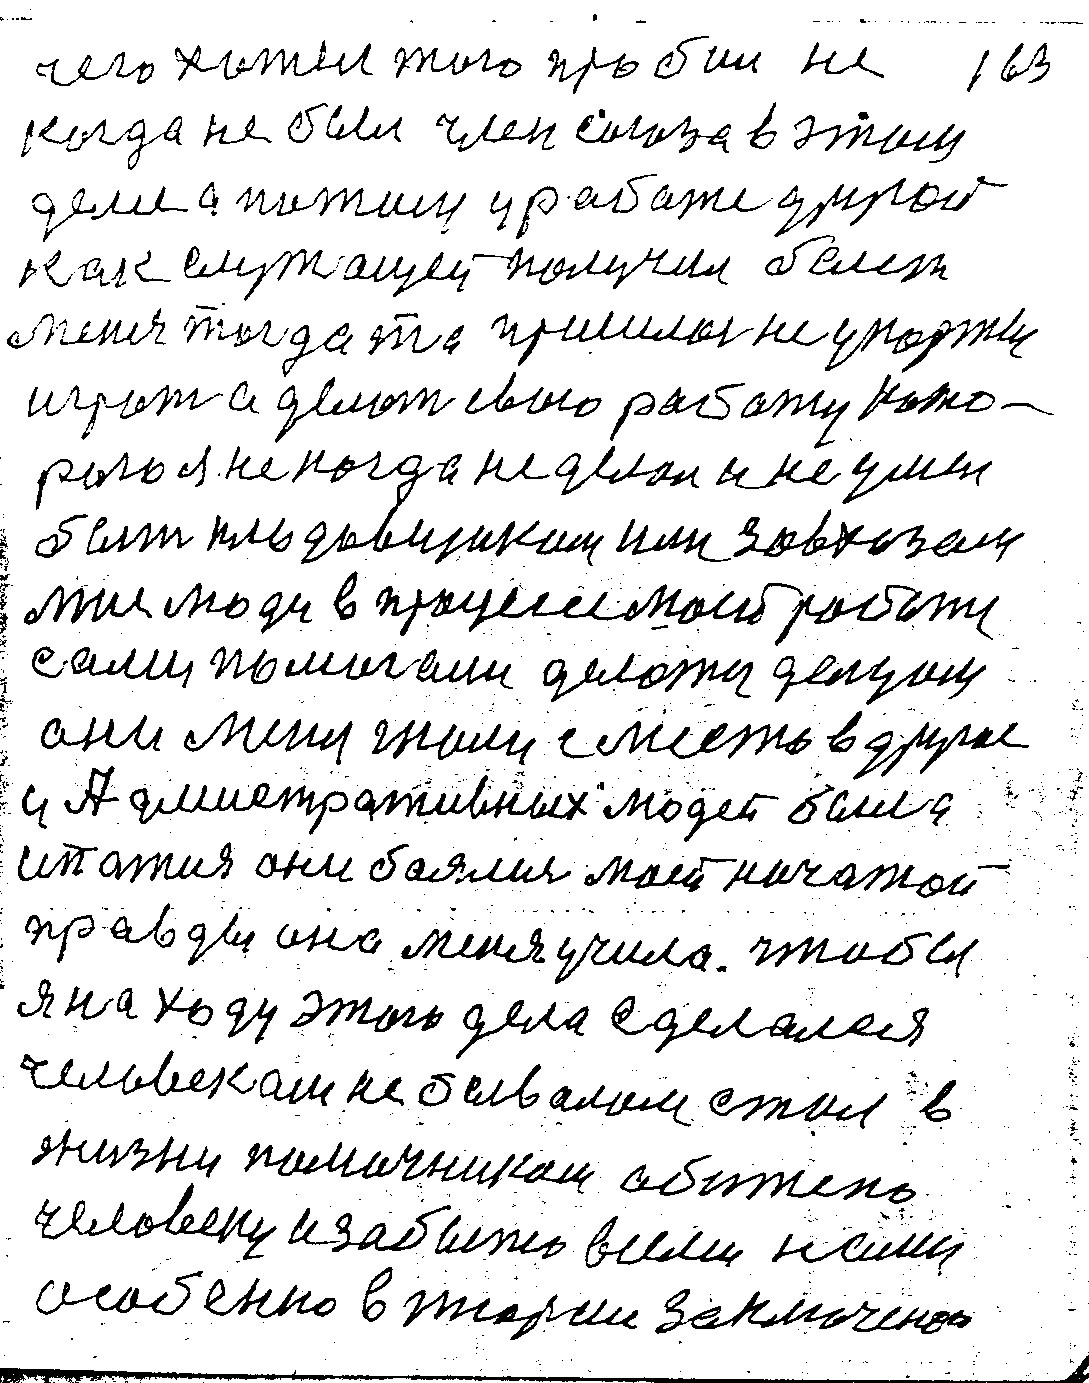 чего хотел того пробыл не 163
когда не был член союза в этом
деле а потому и работе другой
как служащей получил белет
меня тогда та пришлос не у поржи
играт а делат свою работу кото-
рою я не когда не делал и не умел
быт кледовщиком или завхозам
мне люди в процессе моей работы
сами помогали делоты делуом
они меня знали с место в другое
и Адмиистративных людей была
они боялис моей начатой
правды она меня учила. чтобы
я на ходу этого дела сделался
человекам не бывалом стал в
жизни помочникам обижено
человеку и забыто всеми нами
особенно в тюрме заключеного